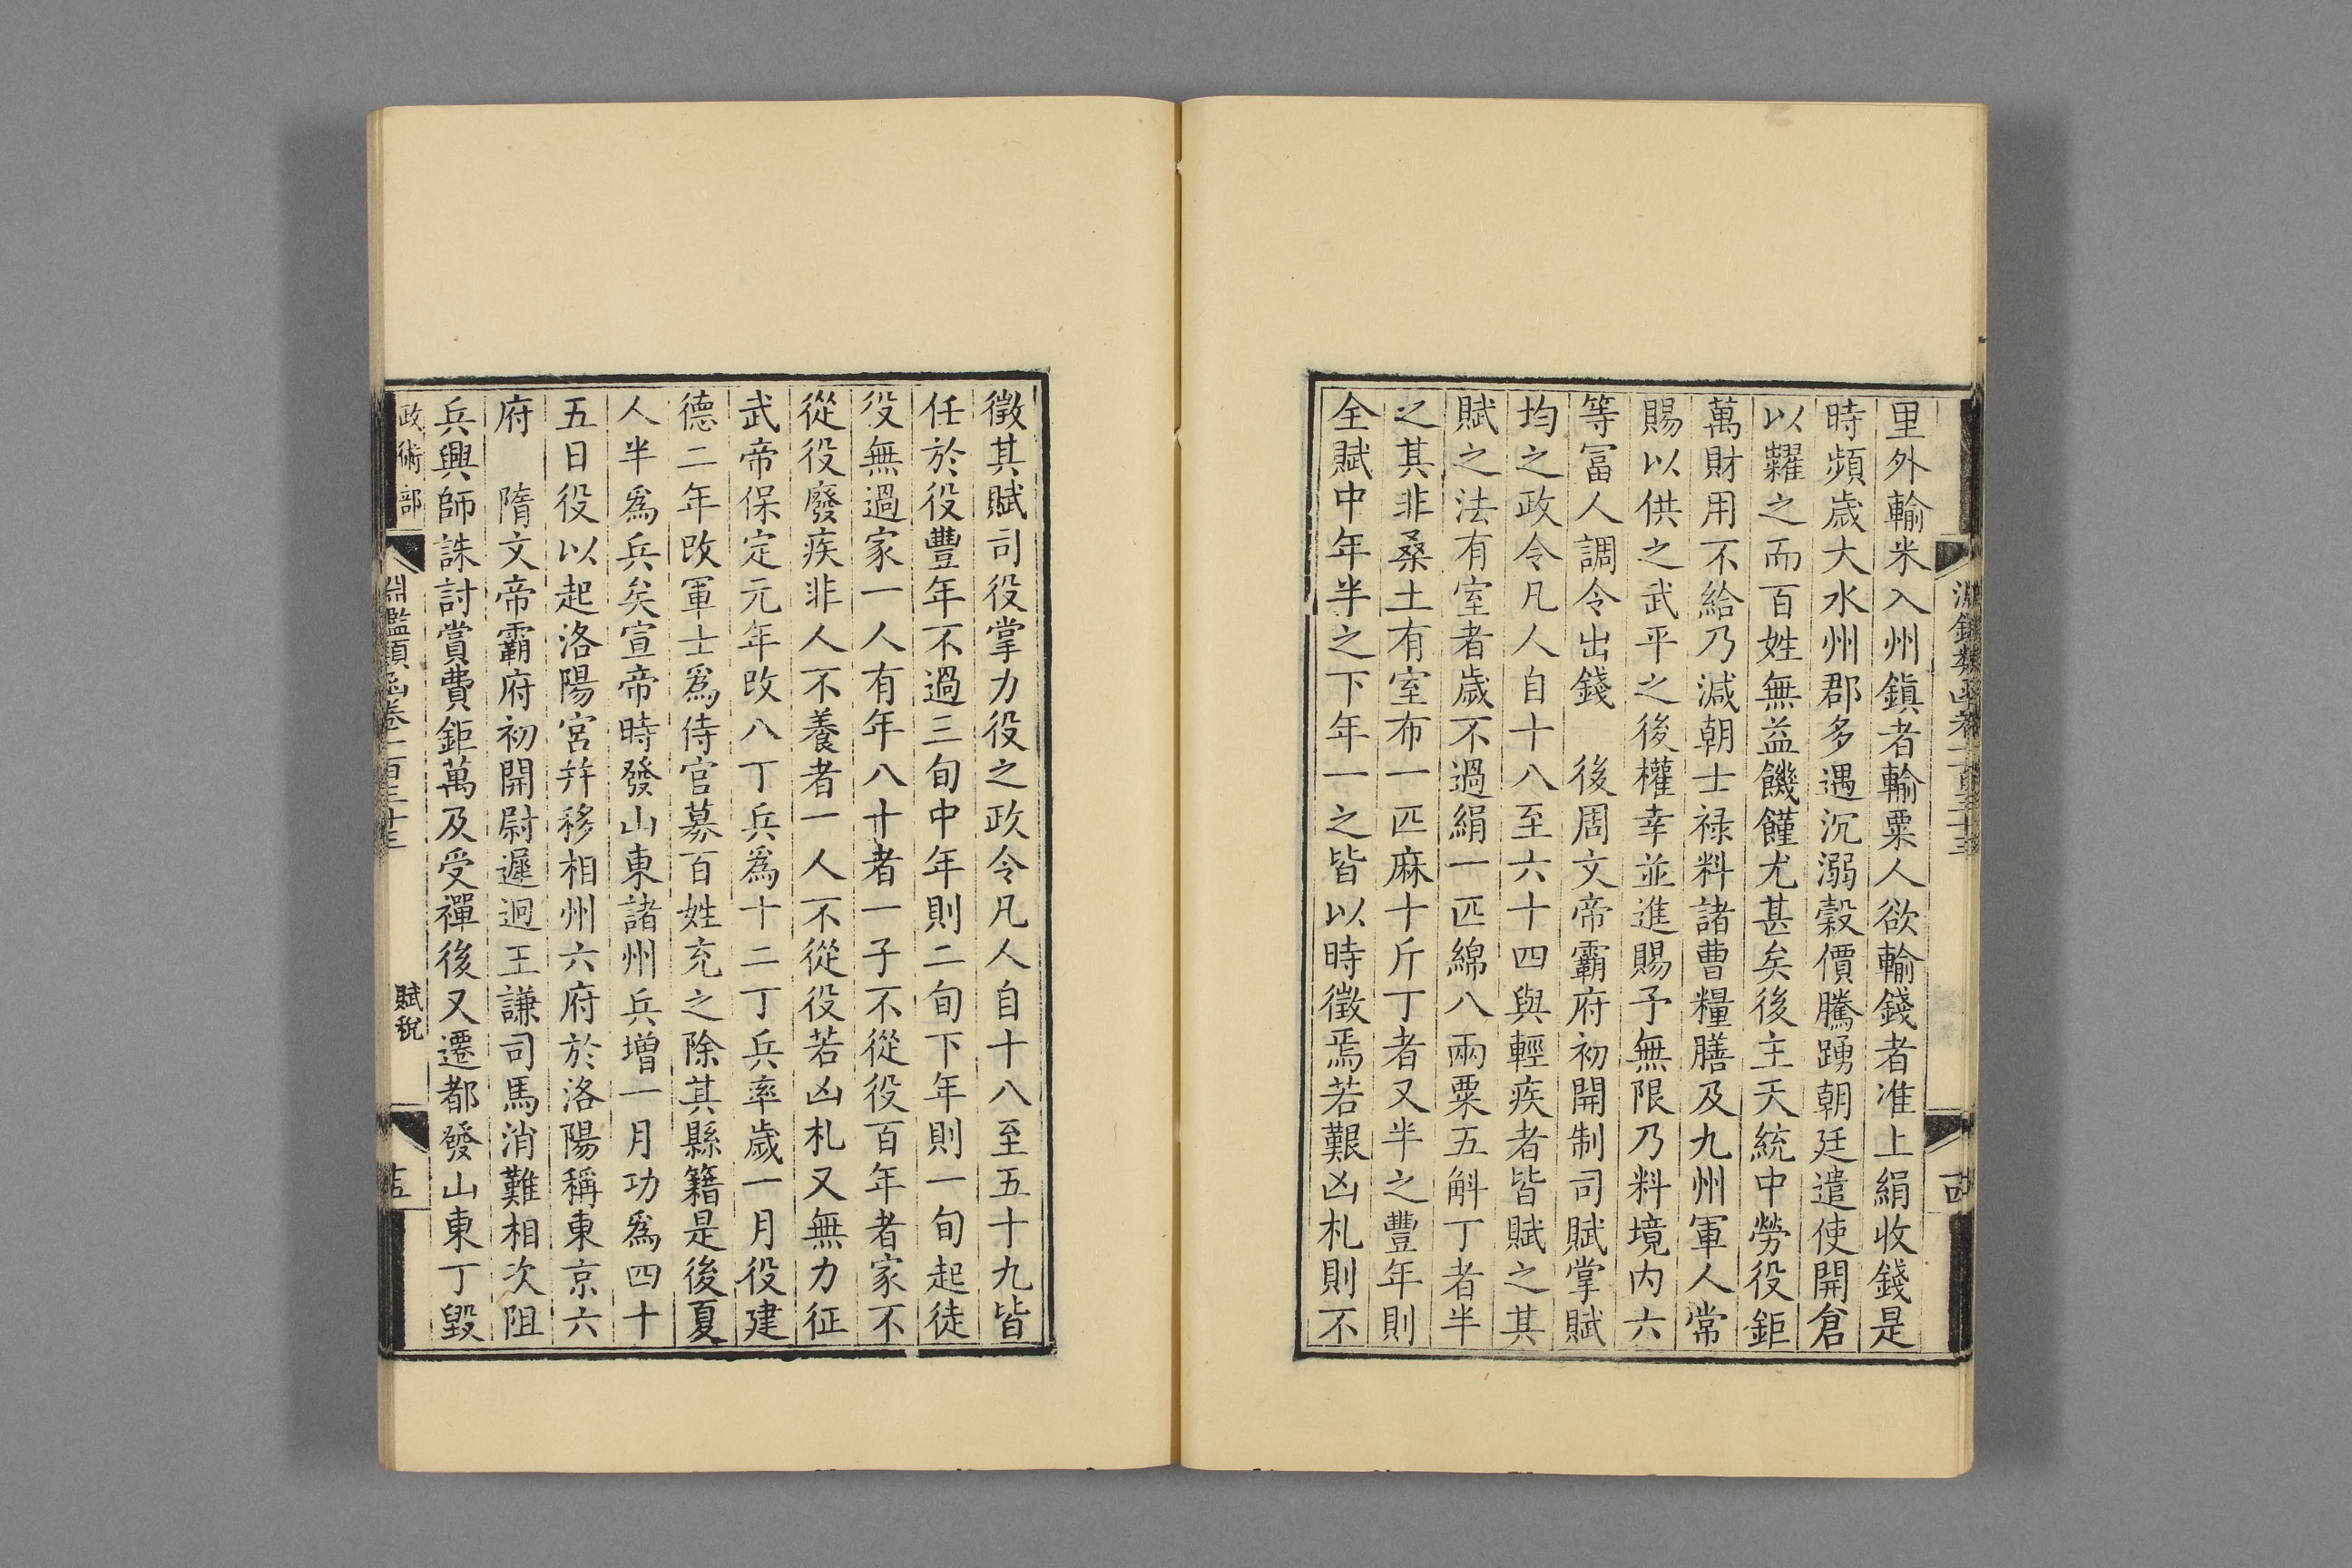 里外輸米入州鎮者輸粟人欲輸錢者准上絹收錢是
時頻歲大水州郡多遇沉溺穀價騰踴朝廷遣使開倉
以糶之而百姓無益饑饉尤甚矣後主天統中勞役鉅
萬財用不給乃減朝士祿料諸曹糧膳及九州軍人常
賜以供之武平之後權幸並進賜予無限乃料境内六
等冨人調令出錢　後周文帝霸府初開制司賦掌賦
均之政令凡人自十八至六十四與輕疾者皆賦之其
賦之法有室者歲不過絹一匹綿八兩粟五斛丁者半
之其非桑土有室布一匹麻十斤丁者又半之豐年則
全賦中年半之下年一之皆以時徵焉若艱凶札則不
徵其賦司役掌力役之政令凡人自十八至五十九皆
任於役豐年不過三旬中年則二旬下年則一旬起徒
役無過家一人有年八十者一子不從役百年者家不
從役廢疾非人不養者一人不從役若凶札又無力征
武帝保定元年改八丁兵爲十二丁兵率歲一月役建
德二年改軍士爲侍官募百姓充之除其縣籍是後夏
人半爲兵矣宣帝時發山東諸州兵增一月功爲四十
五日役以起洛陽宮并移相州六府於洛陽稱東京六
府　隋文帝霸府初開尉遲迥王謙司馬消難相次阻
兵興師誅討賞費鉅萬及受禪後又遷都發山東丁毀
政術部　淵鑑類函卷一百三十三　賦稅　十五